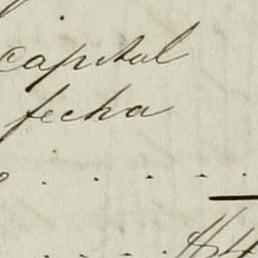 capital
fecha